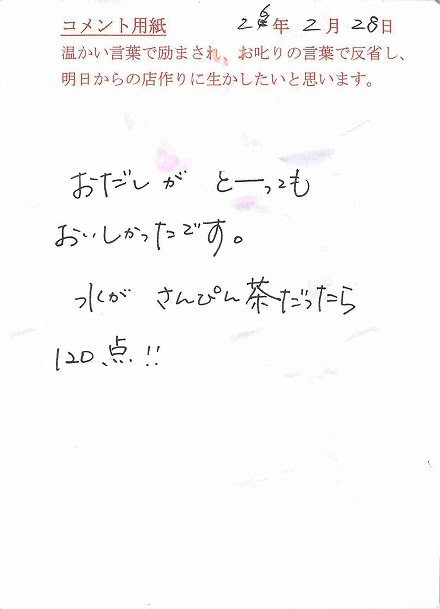 コメント用紙 26年2月28日
温かい言葉で励まされ、お叱りの言葉で反省し、
明日からの店作りに生かしたいと思います。
おだしが とーっても
おいしかったです。
水が さんぴん茶だったら
120点!!